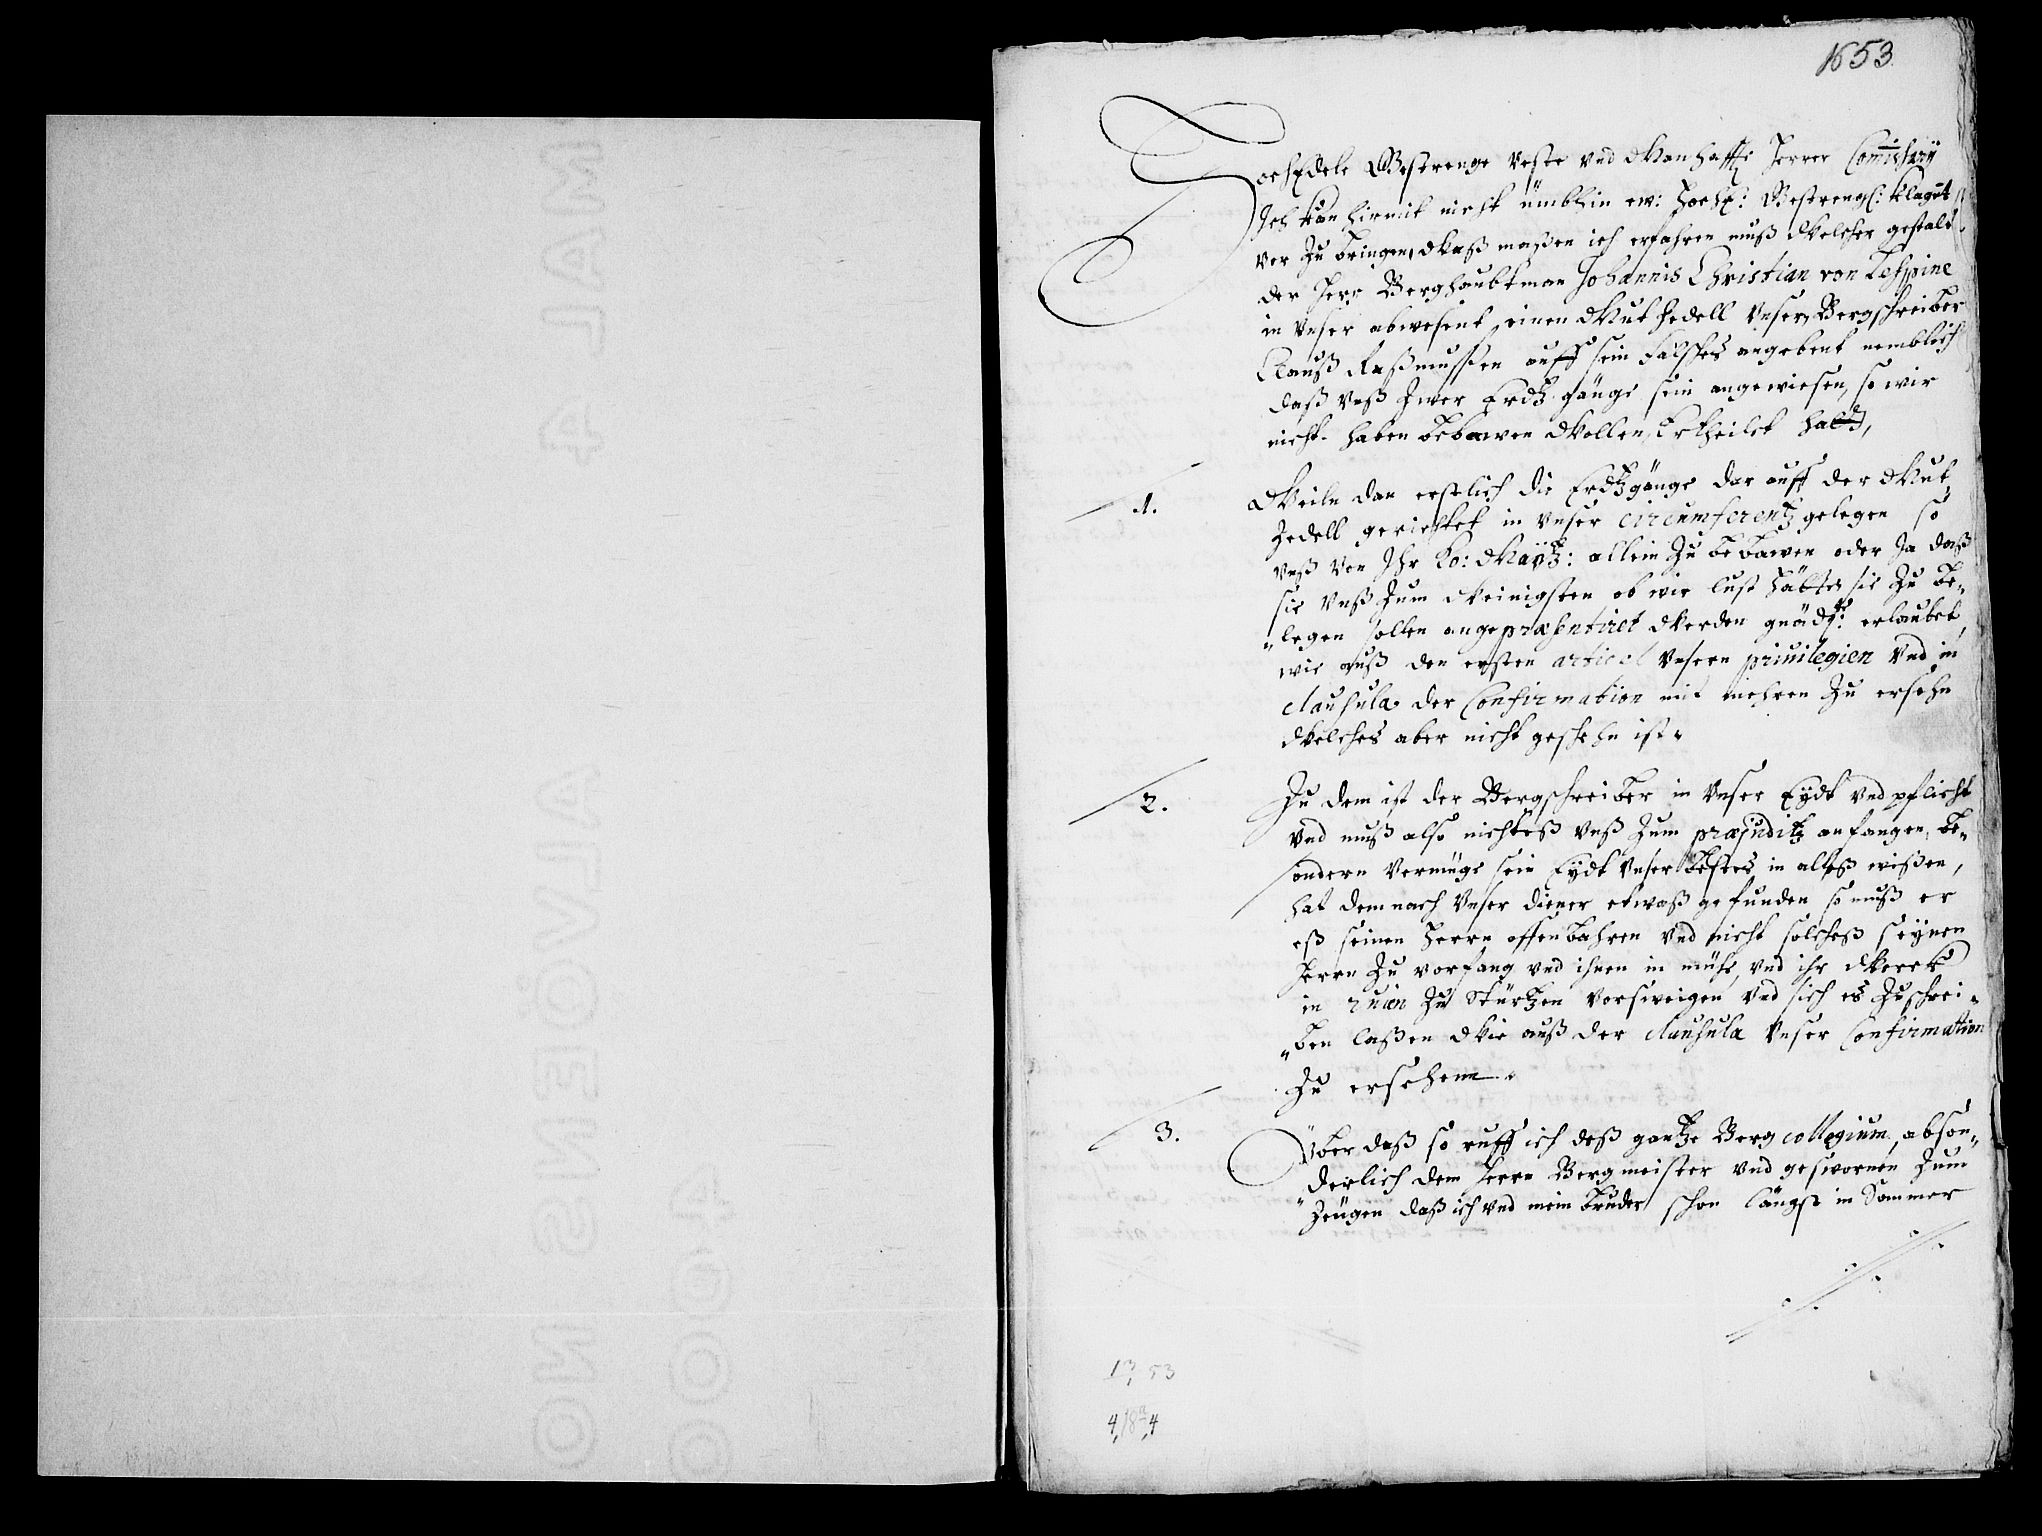 1653.
HochEdele Gestrenge Veste vnd Manhaffte Herrer Comissarÿ
Ich kan hirmit nicht ümbhin ew: HochE: Gestrengl: klagent
vor Zu bringen, Waß maßen ich erfahren muß Welcher gestalt
der Herr Berghaubtman Johannis Christian von Lespine
in Vnser abwesent einen Mut Zedell Vnserm Bergschreiber
Clauß Raßmußen auff sein falsches angebent nemblich
daß Vnß Zwer Erdtz gänge sein angewiesen, so wir
nicht haben bebawen Wollen, Ertheilet hatt,
1.
Weiln dan erstlich die Erdtzgänge dar auff der Mut
Zedell gerichtet in Vnser circumferentz gelegen so
Vnß Von Ihr Ko: Maÿtz: allein Zu bebawen oder Ja daß
sie Vnß Zum Weinigsten ob wir lust hätten sie Zu be-
legen sollen angepræsentiret Werden gnädgst: erlaubet,
wie auß den ersten articel Vnsern priuilegien Vnd in
clausula der Confirmation mit mehren Zu ersehn
Welches aber nicht geschehn ist.
2.
Zu dem ist der Bergschreiber in Vnser Eydt vnd pflicht
Vnd muß also nichteß Vnß Zum præjuditz anfangen, be-
sondern Vermüge sein Eydt Vnser bestes in alleß wißen,
hat demnach Vnser diener etwaß gefunden so muß er
eß seinen Herrn offenbahren Vnd nicht solcheß seynen
Herrn Zu vorfang vnd ihnen in mühe, vnd ihr Werck
in ruien Zu Stürtzen vorsweigen Vnd sich es Zuschrei-
ben laßen Wie auß der clausula Vnser Confirmation
Zu ersehenn.
3.
Vber daß so ruff ich deß gantze Berg collegium, abson-
derlich dem Herrn Bergmeister vnd gesworner Zum
Zeugen daß ich vnd mein bruder schon längst im Sommer
13, 53
4, 18 4